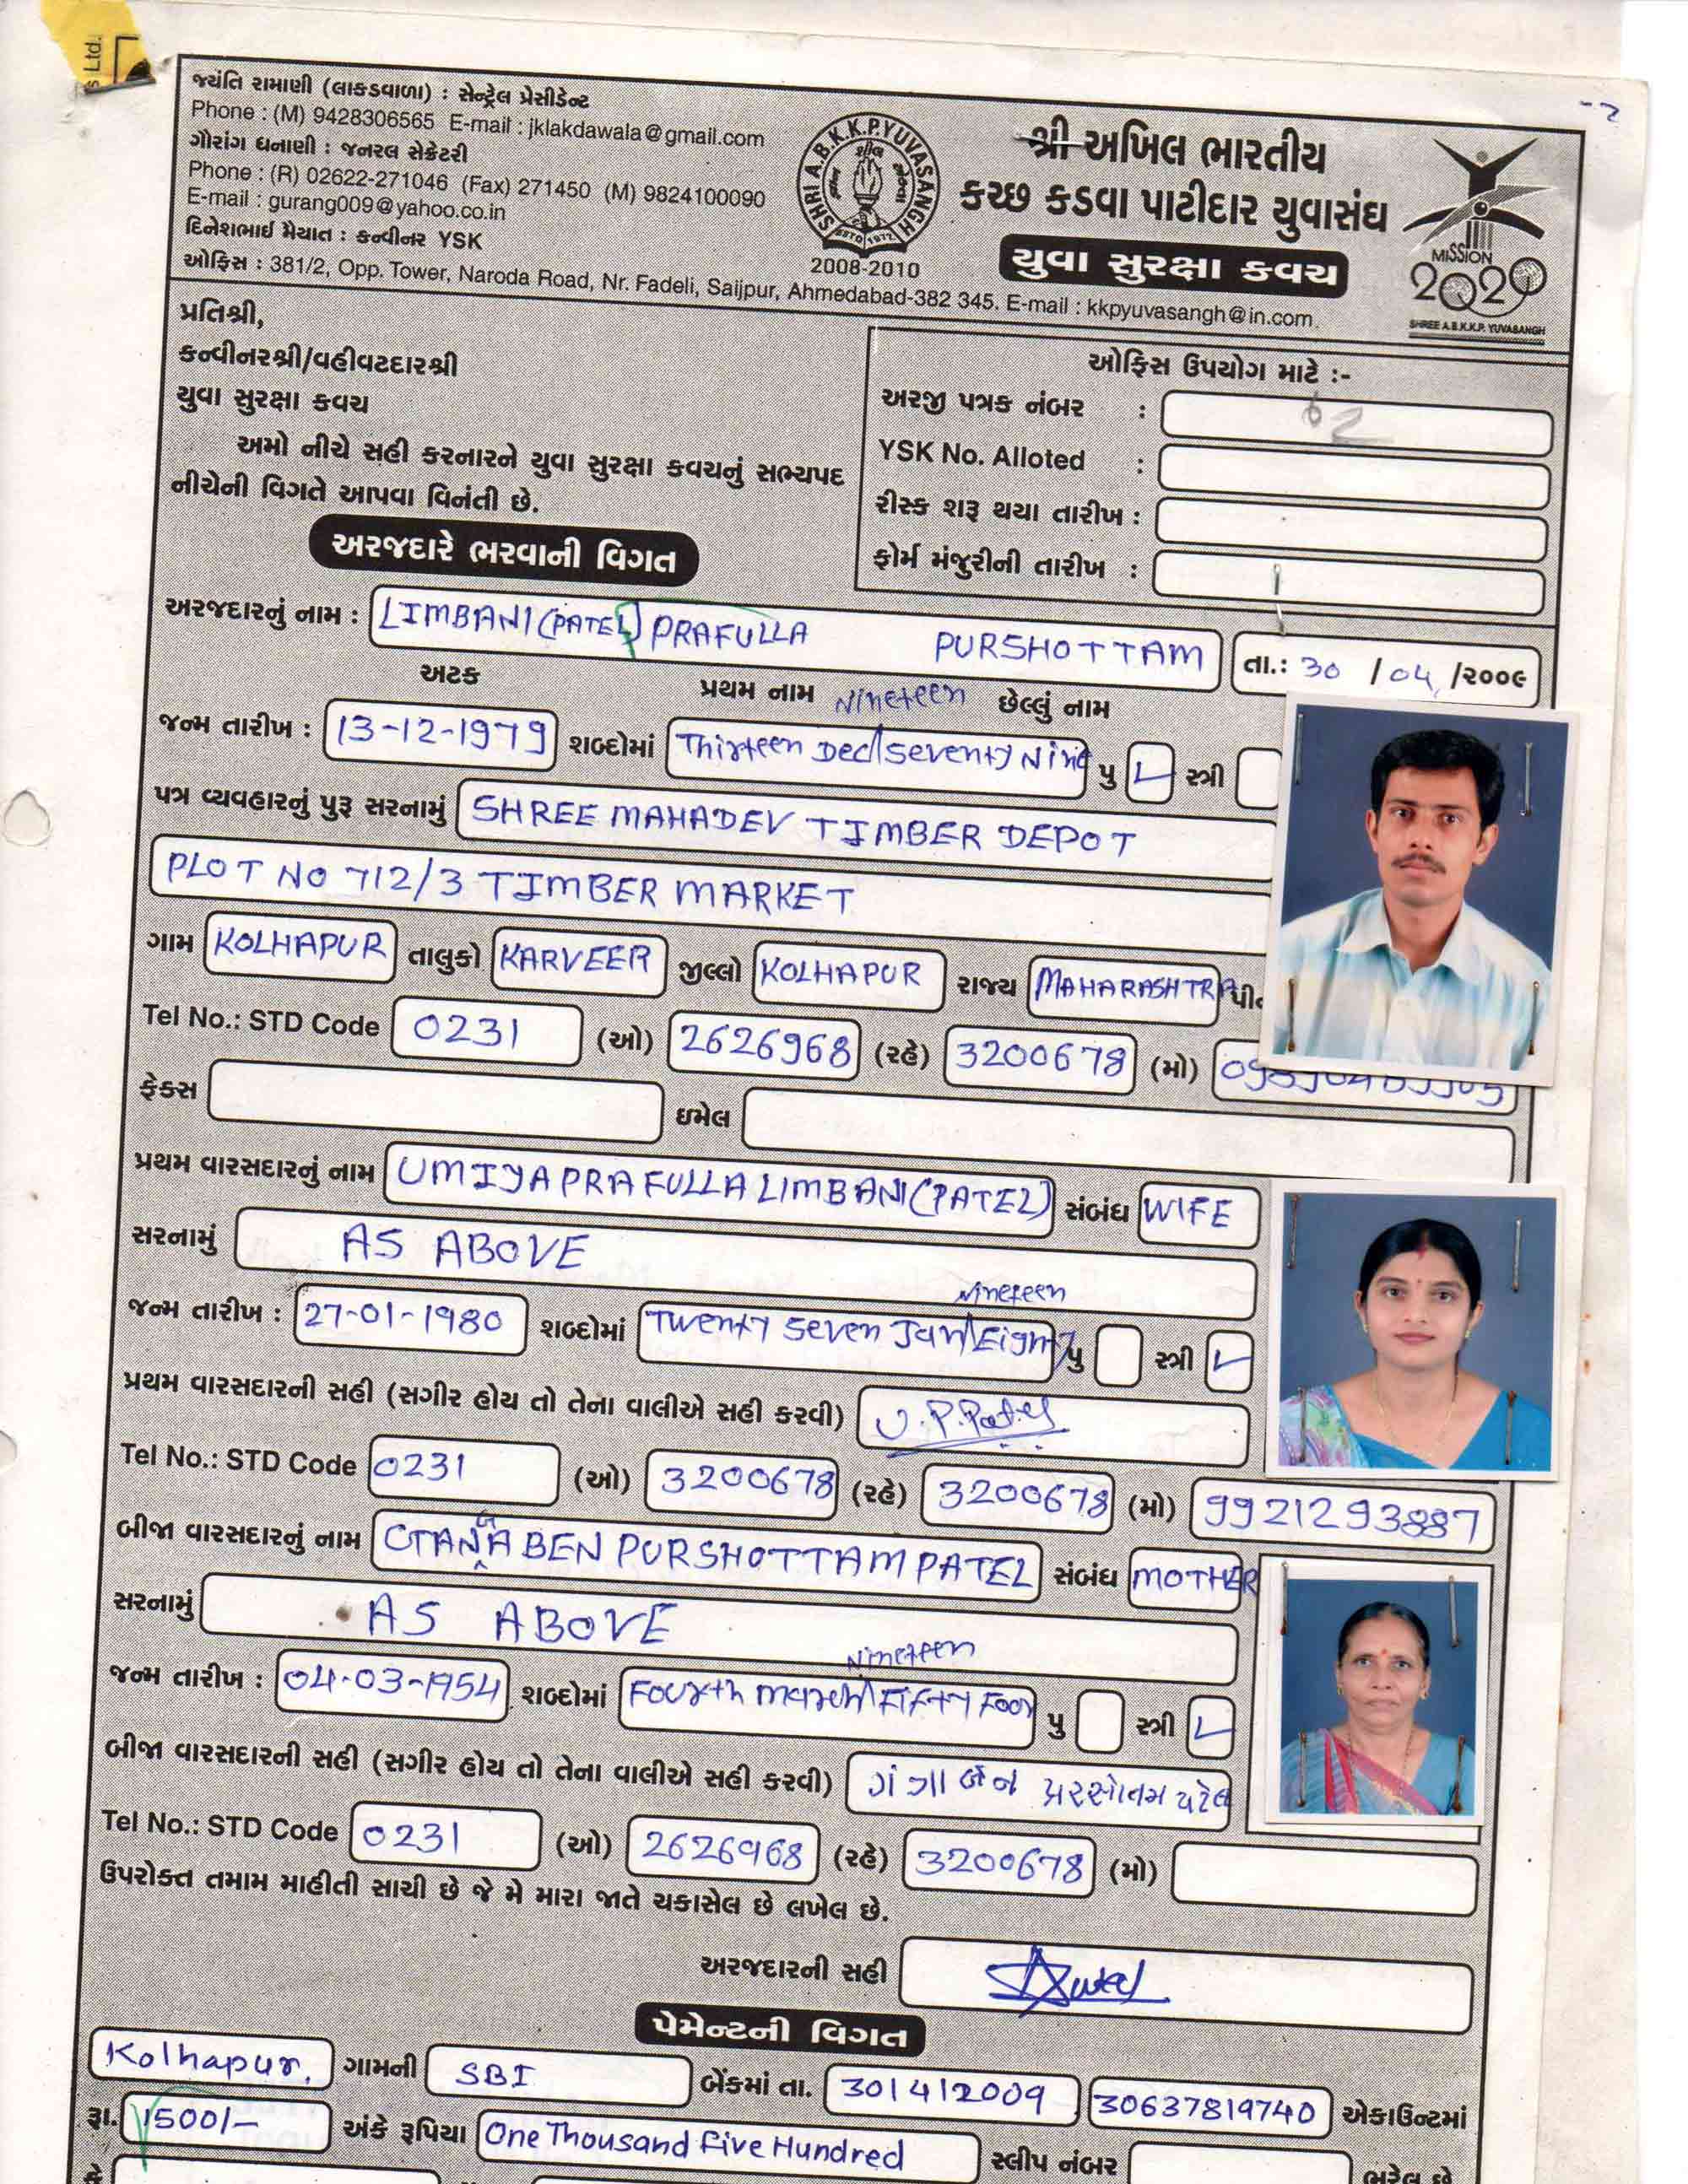 s Ltd.
જયંતિ રામાણી (લાકડાવાળા) : સેન્ટ્રેલ પ્રેસીડેન્ટ
Phone : (M) 9428306565 E-mail : jklakdawala@gmail.com
ગૌરાંગ ધનાણી : જનરલ સેક્રેટરી
Phone : (R) 02622-271046 (Fax) 271450 (M) 9824100090
E-mail : gurang009@yahoo.co.in
દિનેશભાઈ મૈયાત : કન્વીનર YSK
ઓફિસ : 381/2, Opp. Tower, Naroda Road, Nr. Fadeli, Saijpur, Ahmedabad-382 345. E-mail : kkpyuvasangh@in.com.
SHRI A.B.K.K.P.YUVASANGH
ESTD 1972
2008-2010
શ્રી અખિલ ભારતીય
કચ્છ કડવા પાટીદાર યુવાસંઘ
યુવા સુરક્ષા કવચ
MISSION
2020
SHREE A.B.K.K.P. YUVASANGH
પ્રતિશ્રી,
કન્વીનરશ્રી/વહીવટદારશ્રી
યુવા સુરક્ષા કવચ
અમો નીચે સહી કરનારને યુવા સુરક્ષા કવચનું સભ્યપદ
નીચેની વિગતે આપવા વિનંતી છે.
ઓફિસ ઉપયોગ માટે :-
અરજી પત્રક નંબર : 62
YSK No. Alloted :
રીસ્ક શરૂ થયા તારીખ :
ફોર્મ મંજુરીની તારીખ :
અરજદારે ભરવાની વિગત
અરજદારનું નામ : LIMBANI (PATEL) PRAFULLA PURSHOTTAM તા.: 30 / 04 /૨૦૦૯
અટક પ્રથમ નામ છેલ્લું નામ
Nineteen
જન્મ તારીખ : 13-12-1979 શબ્દોમાં Thirteen Dec/Seventy Nine પુ સ્ત્રી
પત્ર વ્યવહારનું પુરૂ સરનામું SHREE MAHADEV TIMBER DEPOT
PLOT NO 712/3 TIMBER MARKET
ગામ KOLHAPUR તાલુકો KARVEER જીલ્લો KOLHAPUR રાજ્ય MAHARASHTRA
Tel No.: STD Code 0231 (ઓ) 2626968 (રહે) 3200678 (મો)
ફેક્સ ઇમેલ
પ્રથમ વારસદારનું નામ UMIYA PRAFULLA LIMBANI (PATEL) સંબંધ WIFE
સરનામું AS ABOVE
Nineteen
જન્મ તારીખ : 27-01-1980 શબ્દોમાં Twenty Seven Jan/Eighty પુ સ્ત્રી
પ્રથમ વારસદારની સહી (સગીર હોય તો તેના વાલીએ સહી કરવી) U.P.Patel
Tel No.: STD Code 0231 (ઓ) 3200678 (રહે) 3200678 (મો) 9921293887
બીજા વારસદારનું નામ GANGABEN PURSHOTTAM PATEL સંબંધ MOTHER
સરનામું AS ABOVE
Nineteen
જન્મ તારીખ : 04-03-1954 શબ્દોમાં Fourth march/FIFTY Foor પુ સ્ત્રી
બીજા વારસદારની સહી (સગીર હોય તો તેના વાલીએ સહી કરવી) ગંગાબેન પરસોતમ પટેલ
Tel No.: STD Code 0231 (ઓ) 2626968 (રહે) 3200678 (મો)
ઉપરોક્ત તમામ માહીતી સાચી છે જે મે મારા જાતે ચકાસેલ છે લખેલ છે.
અરજદારની સહી
પેમેન્ટની વિગત
Kolhapur. ગામની SBI બેંકમાં તા. 30/4/2009 30637819740 એકાઉન્ટમાં
રૂા. 1500/- અંકે રૂપિયા One Thousand Five Hundred સ્લીપ નંબર ભરેલ છે